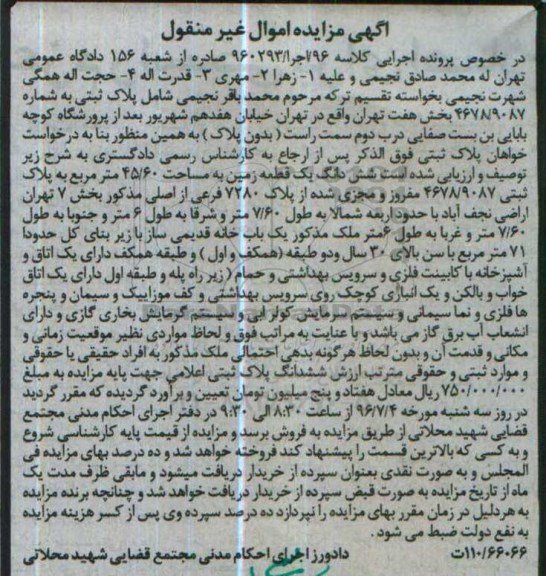 آگهی مزایده اموال غیر منقول
در خصوص پرونده اجرایی کلاسه ۹۶/اجرا/۹۶۰۲۹۳ صادره از شعبه ۱۵۶ دادگاه عمومی
تهران له محمد صادق نجیمی و علیه ۱- زهرا ۲- مهری ۳- قدرت اله ۴- حجت اله همگی
شهرت نجیمی بخواسته تقسیم ترکه مرحوم محمد باقر نجیمی شامل پلاک ثبتی به شماره
۴۶۷۸/۹۰۸۷ بخش هفت تهران واقع در تهران خیابان هفدهم شهریور بعد از پرورشگاه کوچه
بابایی بن بست صفایی درب دوم سمت راست ( بدون پلاک ) به همین منظور بنا به درخواست
خواهان پلاک ثبتی فوق الذکر پس از ارجاع به کارشناس رسمی دادگستری به شرح زیر
توصیف و ارزیابی شده است شش دانگ یک قطعه زمین به مساحت ۴۵/۶۰ متر مربع به پلاک
ثبتی ۴۶۷۸/۹۰۸۷ مفروز و مجزی شده از پلاک ۷۲۸۰ فرعی از اصلی مذکور بخش ۷ تهران
اراضی نجف آباد با حدود اربعه شمالا به طول ۷/۶۰ متر و شرقا به طول ۶ متر و جنوبا به طول
۷/۶۰ متر و غربا به طول ۶متر ملک مذکور یک باب خانه قدیمی ساز با زیر بنای کل حدودا
۷۱ متر مربع با سن بالای ۳۰ سال ودو طبقه (همکف و اول ) و طبقه همکف دارای یک اتاق و
آشپزخانه با کابینت فلزی و سرویس بهداشتی و حمام ( زیر راه پله و طبقه اول دارای یک اتاق
خواب و بالکن و یک انباری کوچک روی سرویس بهداشتی و کف موزاییک و سیمان و پنجره
ها فلزی و نما سیمانی و سیستم سرمایش کولر آبی و سیستم گرمایش بخاری گازی و دارای
انشعاب آب برق گاز می باشد و با عنایت به مراتب فوق و لحاظ مواردی نظیر موقعیت زمانی و
مکانی و قدمت آن و بدون لحاظ هر گونه بدهی احتمالی ملک مذکور به افراد حقیقی یا حقوقی
و موارد ثبتی و حقوقی مترتب ارزش ششدانگ پلاک ثبتی اعلامی جهت پایه مزایده به مبلغ
۷۵۰/۰۰۰/۰۰۰ ریال معادل هفتاد و پنج میلیون تومان تعیین و برآورد گردیده که مقرر گردید
در روز سه شنبه مورخه ۹۶/۷/۴ از ساعت ۸:۳۰ الی ۹:۳۰ در دفتر اجرای احکام مدنی مجتمع
قضایی شهید محلاتی از طریق مزایده به فروش برسد و مزایده از قیمت پایه کارشناسی شروع
و به کسی که بالاترین قسمت را پیشنهاد کند فروخته خواهد شد و ده درصد بهای مزایده فی
المجلس و به صورت نقدی بعنوان سپرده از خریدار دریافت میشود و مابقی ظرف مدت یک
ماه از تاریخ مزایده به صورت قبض سپرده از خریدار دریافت خواهد شد و چنانچه برنده مزایده
به هر دلیل در زمان مقرر بهای مزایده را نپردازد ده درصد سپرده وی پس از کسر هزینه مزایده
به نفع دولت ضبط می شود .
۱۱۰/۶۶۰۶۶ت دادورز اجرای احکام مدنی مجتمع قضایی شهید محلاتی